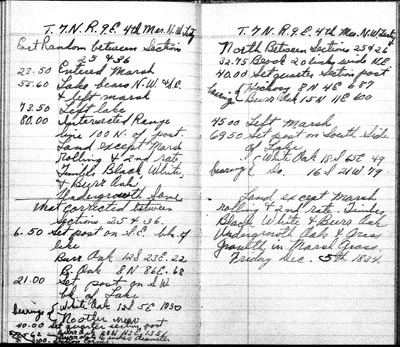 T. 7 N. R. 9 E. 4th Mer. N.W. Ty
East Random between Sections
25 & 36
23.50 Entered Marsh
55.60 Lake bears N.W. & E.
& left marsh
73.50 Left lake
80.00 Intersected Range
line 100 N. of post
Land except Marsh
Rolling & 2nd rate
Timber Black, White,
& Burr Oak
Undergrowth Same
that corrected between
Sections 25 & 36.
6.50 Set post on S.E. bk. of
lake
Burr Oak 12 S 23 E. 22
B. Oak 8 N 86 E. 68
21.00 Set post on S.W
bk of Lake
bearing White Oak 12 S 5 E 1050
No other near
40.00 Set quarter section post
T. 7 N. R. 9 E. 4th Mer. N.W. Ty
North Between Sections 25 & 26
32.75 Brook 20 links wide N.E.
40.00 Set quarter section post
bearing Hickory 8 N 4 E 687
Burr Oak 15 N 11 E 600
45.00 Left Marsh
69.50 Set post on South Side
of Lake
bearing White Oak 18 S 65 E 49
Do. 16 S 21 W 79
Land except marsh
rolling & 2nd rate. Timber
Black White & Burr Oak
Undergrowth Oak & Grass
Growth in Marsh Grass.
Friday Dec. 5th 1834.